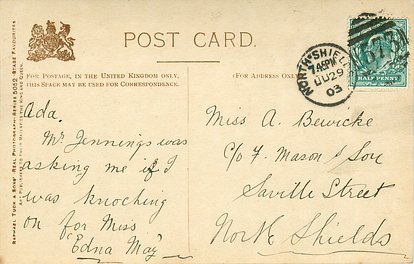 POST CARD.
FOR POSTAGE, IN THE UNITED KINGDOM ONLY,
THIS SPACE MAY BE USED FOR CORRESPONDENCE.
(FOR ADDRESS ONLY)
RAPHAEL TUCK & SONS' REAL PHOTOGRAPH SERIES 5052 "STAGE FAVOURITES"
ART PUBLISHERS TO THEIR MAJESTIES THE KING AND QUEEN.
Ada.
Mr Jennings was
asking me if I
was knocking
on for Miss
"Edna May"
Miss A. Bewicke
C/o F. Mason & Son
Saville Street
North Shields
NORTH SHIELDS
JU 29
03
HALF PENNY